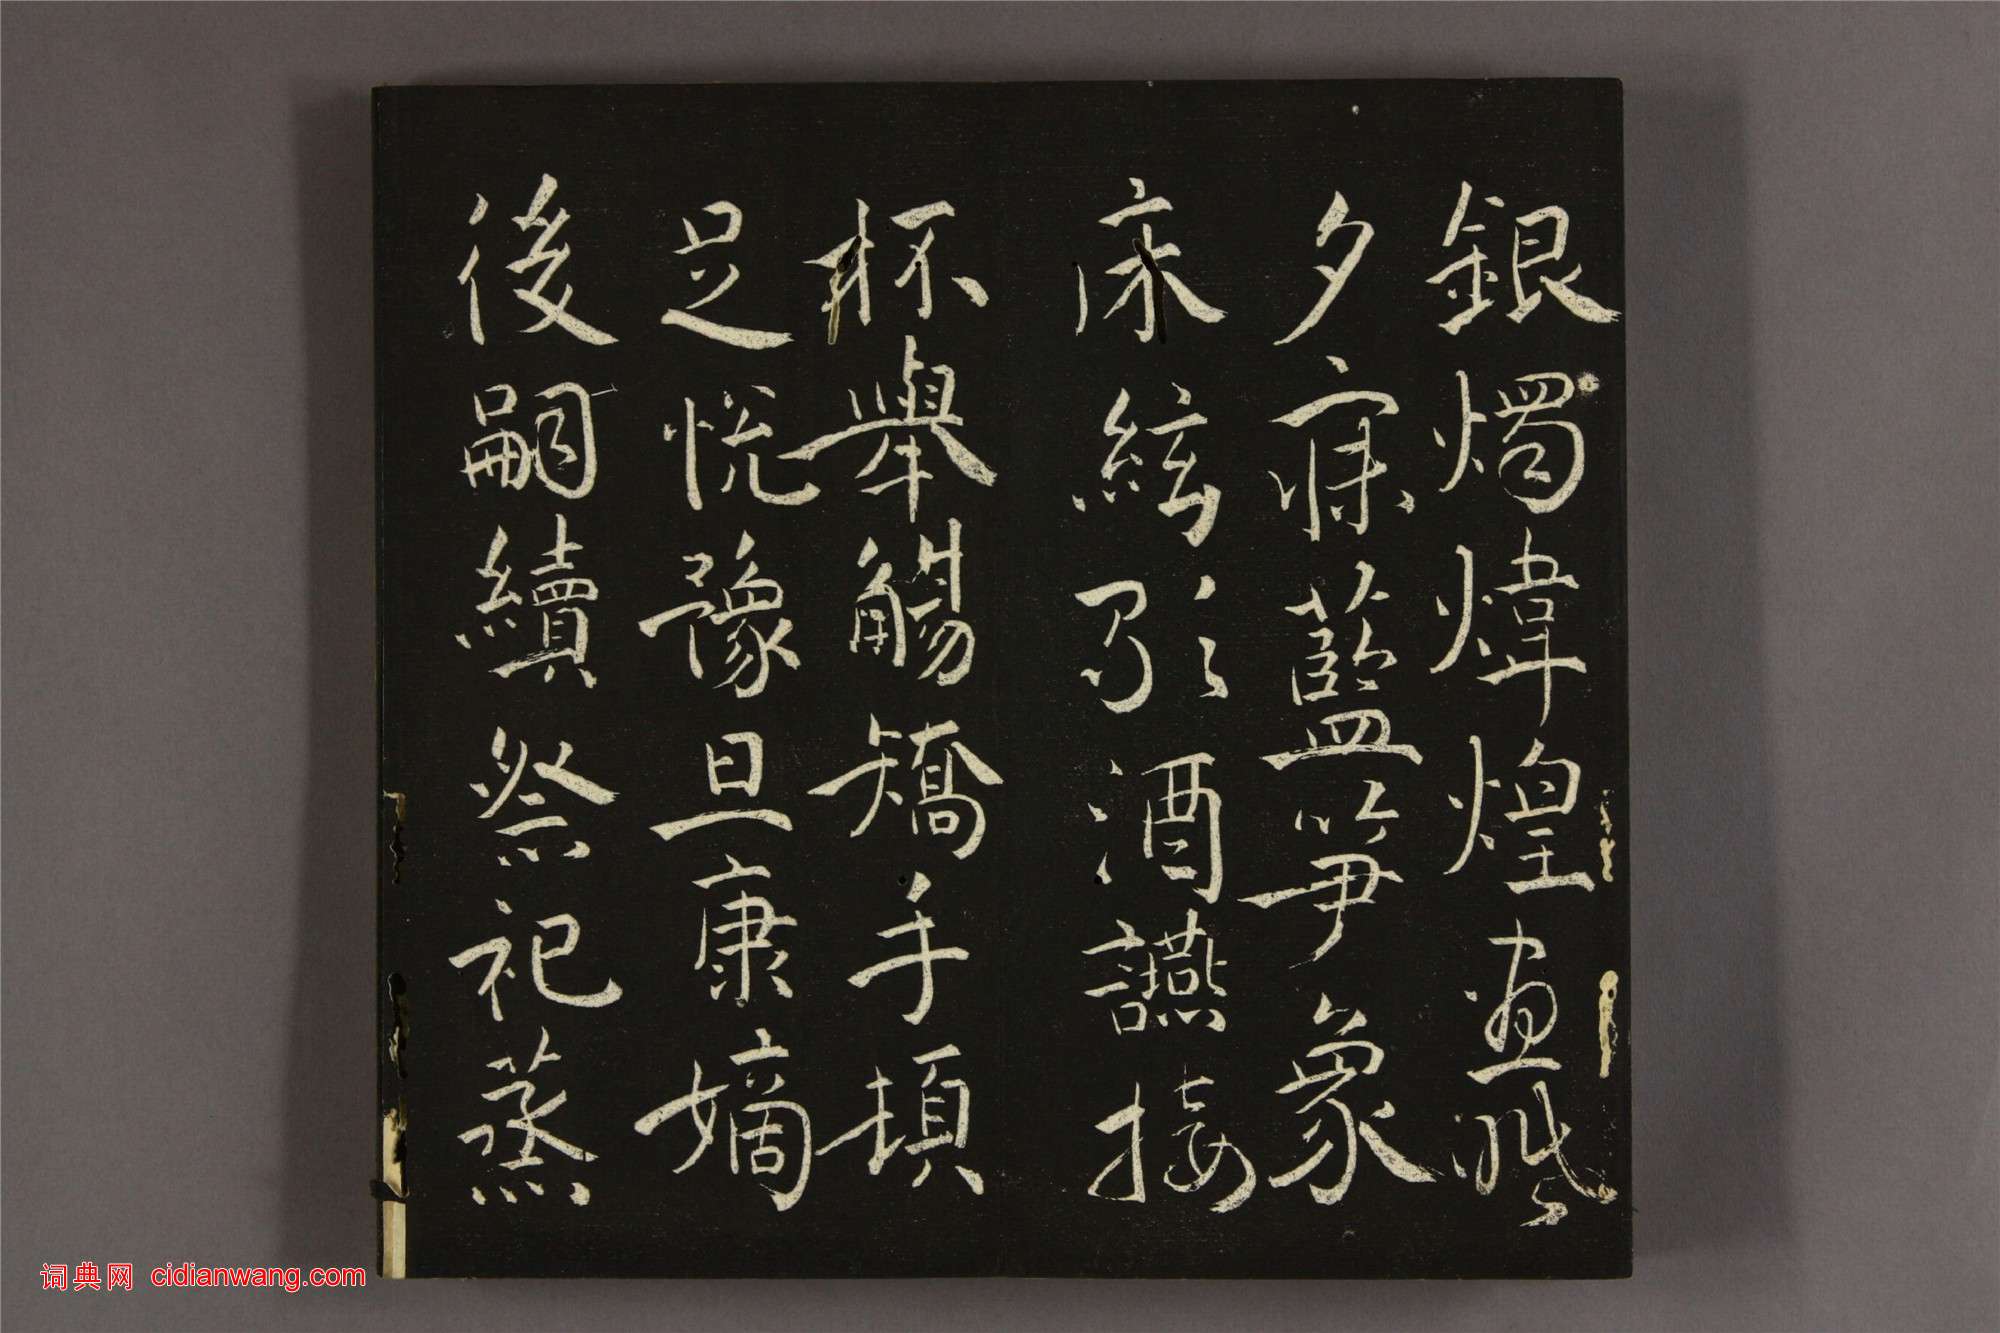 銀燭煒煌晝眠
夕寐藍笋象
床絃歌酒讌接
杯舉觴矯手頓
足悅豫旦康嫡
後嗣續祭祀蒸
词典网 cidianwang.com